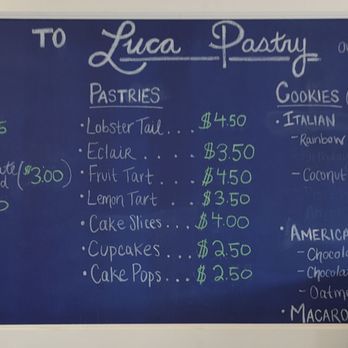 TO Luca Pastry
PASTRIES
• Lobster Tail . . . $4.50
• Eclair . . . . . $3.50
• Fruit Tart . . . $4.50
• Lemon Tart . . . $3.50
• Cake Slices . . $4.00
• Cupcakes . . . $2.50
• Cake Pops . . . $2.50
($3.00)
COOKIES (
• ITALIAN
- Rainbow
- Coconut
• AMERICA
- Chocol
- Chocola
- Oatm
• MACARO